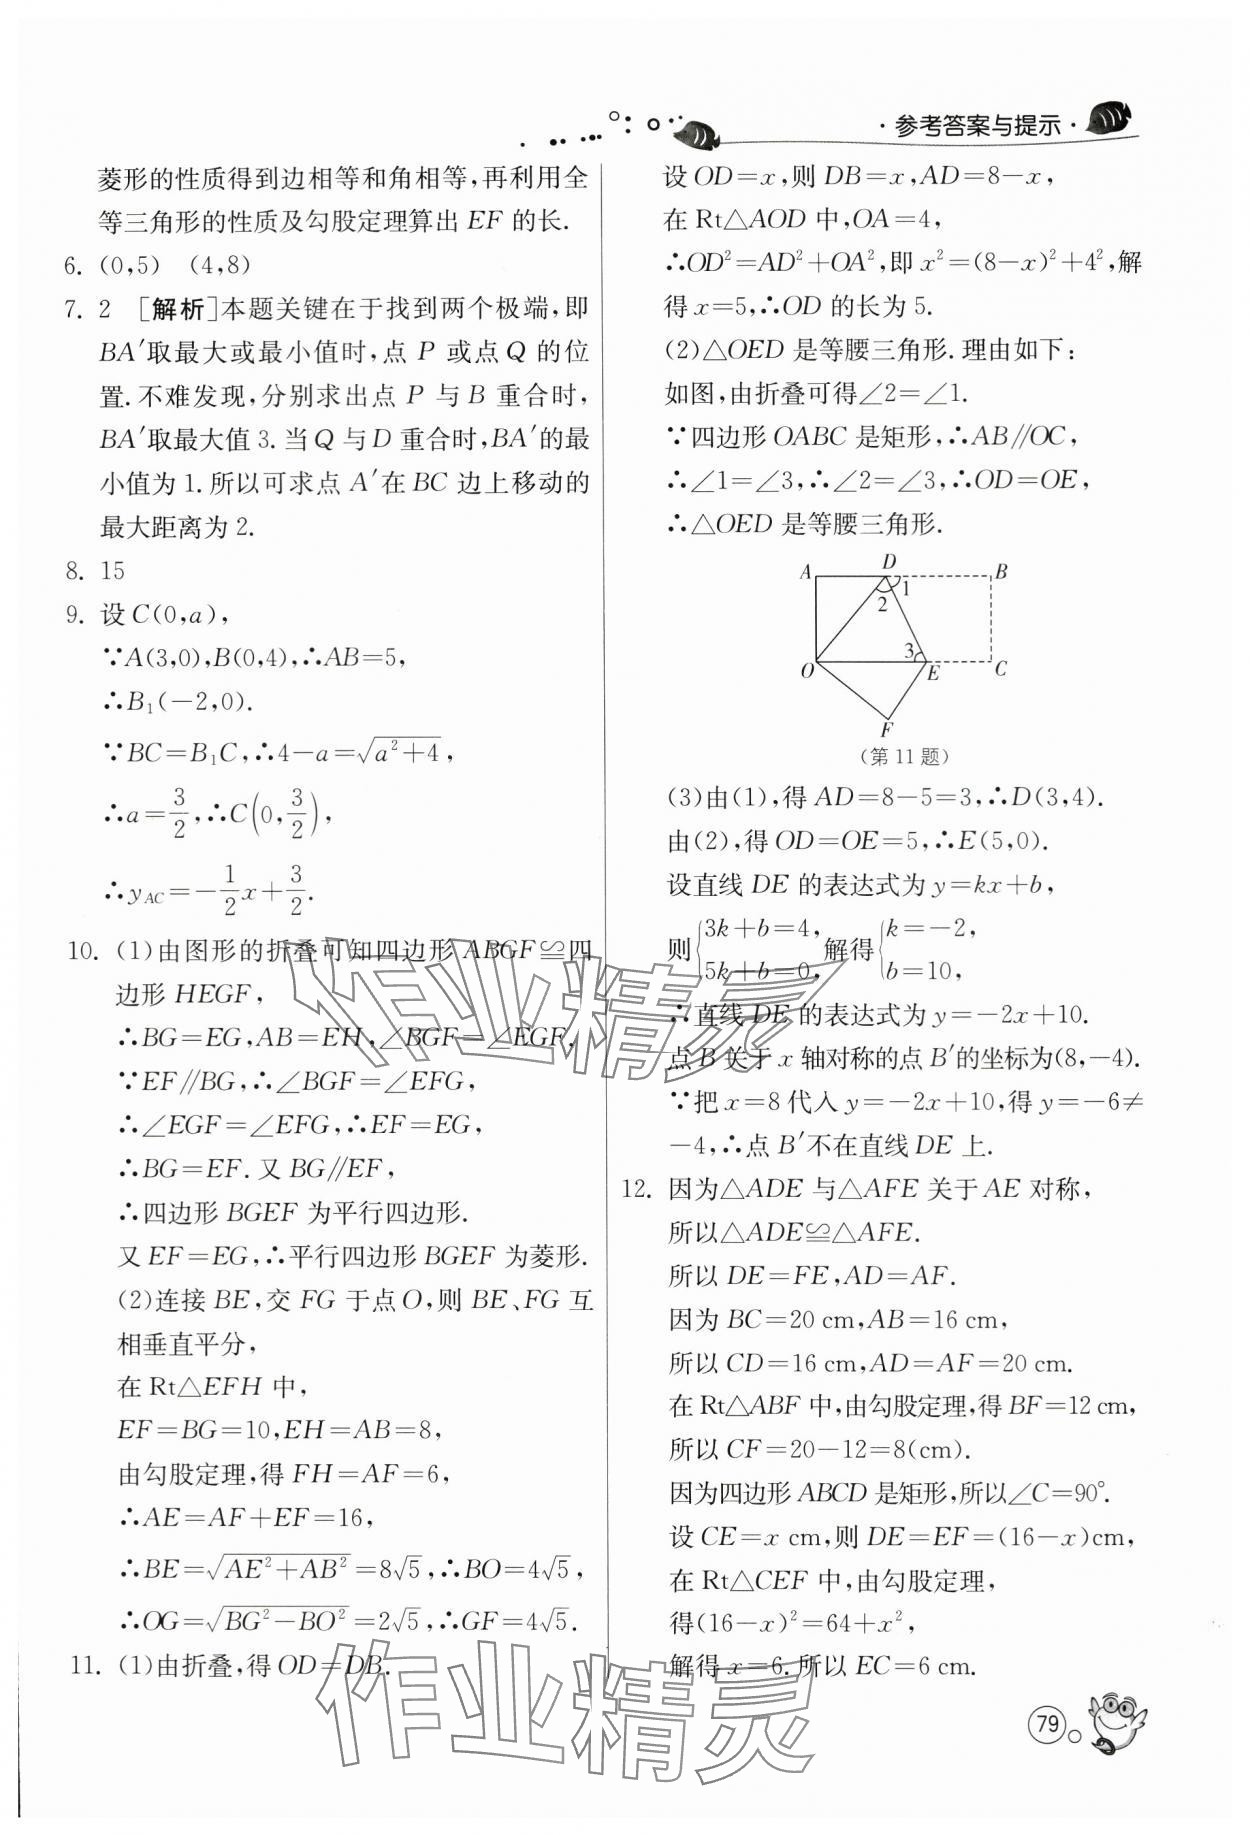 ·参考答案与提示·
菱形的性质得到边相等和角相等,再利用全
等三角形的性质及勾股定理算出 EF 的长.
6. (0,5) (4,8)
7. 2 [解析]本题关键在于找到两个极端,即
BA′取最大或最小值时,点 P 或点 Q 的位
置.不难发现,分别求出点 P 与 B 重合时,
BA′取最大值 3.当 Q 与 D 重合时,BA′的最
小值为 1.所以可求点 A′在 BC 边上移动的
最大距离为 2.
8. 15
9. 设 C(0,a),
∵A(3,0),B(0,4),∴AB=5,
∴B₁(-2,0).
∵BC=B₁C,∴4-a=√(a²+4),
∴a=3/2,∴C(0,3/2),
∴y_AC=-1/2x+3/2.
10. (1)由图形的折叠可知四边形 ABGF≌四
边形 HEGF,
∴BG=EG,AB=EH,∠BGF=∠EGF,
∵EF∥BG,∴∠BGF=∠EFG,
∴∠EGF=∠EFG,∴EF=EG,
∴BG=EF.又 BG∥EF,
∴四边形 BGEF 为平行四边形.
又 EF=EG,∴平行四边形 BGEF 为菱形.
(2)连接 BE,交 FG 于点 O,则 BE、FG 互
相垂直平分,
在 Rt△EFH 中,
EF=BG=10,EH=AB=8,
由勾股定理,得 FH=AF=6,
∴AE=AF+EF=16,
∴BE=√(AE²+AB²)=8√5,∴BO=4√5,
∴OG=√(BG²-BO²)=2√5,∴GF=4√5.
11. (1)由折叠,得 OD=DB.
设 OD=x,则 DB=x,AD=8-x,
在 Rt△AOD 中,OA=4,
∴OD²=AD²+OA²,即 x²=(8-x)²+4²,解
得 x=5,∴OD 的长为 5.
(2)△OED 是等腰三角形.理由如下:
如图,由折叠可得∠2=∠1.
∵四边形 OABC 是矩形,∴AB∥OC,
∴∠1=∠3,∴∠2=∠3,∴OD=OE,
∴△OED 是等腰三角形.
A D B
1
2
3
O E C
F
(第 11 题)
(3)由(1),得 AD=8-5=3,∴D(3,4).
由(2),得 OD=OE=5,∴E(5,0).
设直线 DE 的表达式为 y=kx+b,
则{3k+b=4, 5k+b=0,解得{k=-2, b=10,
∴直线 DE 的表达式为 y=-2x+10.
点 B 关于 x 轴对称的点 B′的坐标为(8,-4).
∵把 x=8 代入 y=-2x+10,得 y=-6≠
-4,∴点 B′不在直线 DE 上.
12. 因为△ADE 与△AFE 关于 AE 对称,
所以△ADE≌△AFE.
所以 DE=FE,AD=AF.
因为 BC=20 cm,AB=16 cm,
所以 CD=16 cm,AD=AF=20 cm.
在 Rt△ABF 中,由勾股定理,得 BF=12 cm,
所以 CF=20-12=8(cm).
因为四边形 ABCD 是矩形,所以∠C=90°.
设 CE=x cm,则 DE=EF=(16-x)cm,
在 Rt△CEF 中,由勾股定理,
得(16-x)²=64+x²,
解得 x=6.所以 EC=6 cm.
79
作业精灵
作业精灵